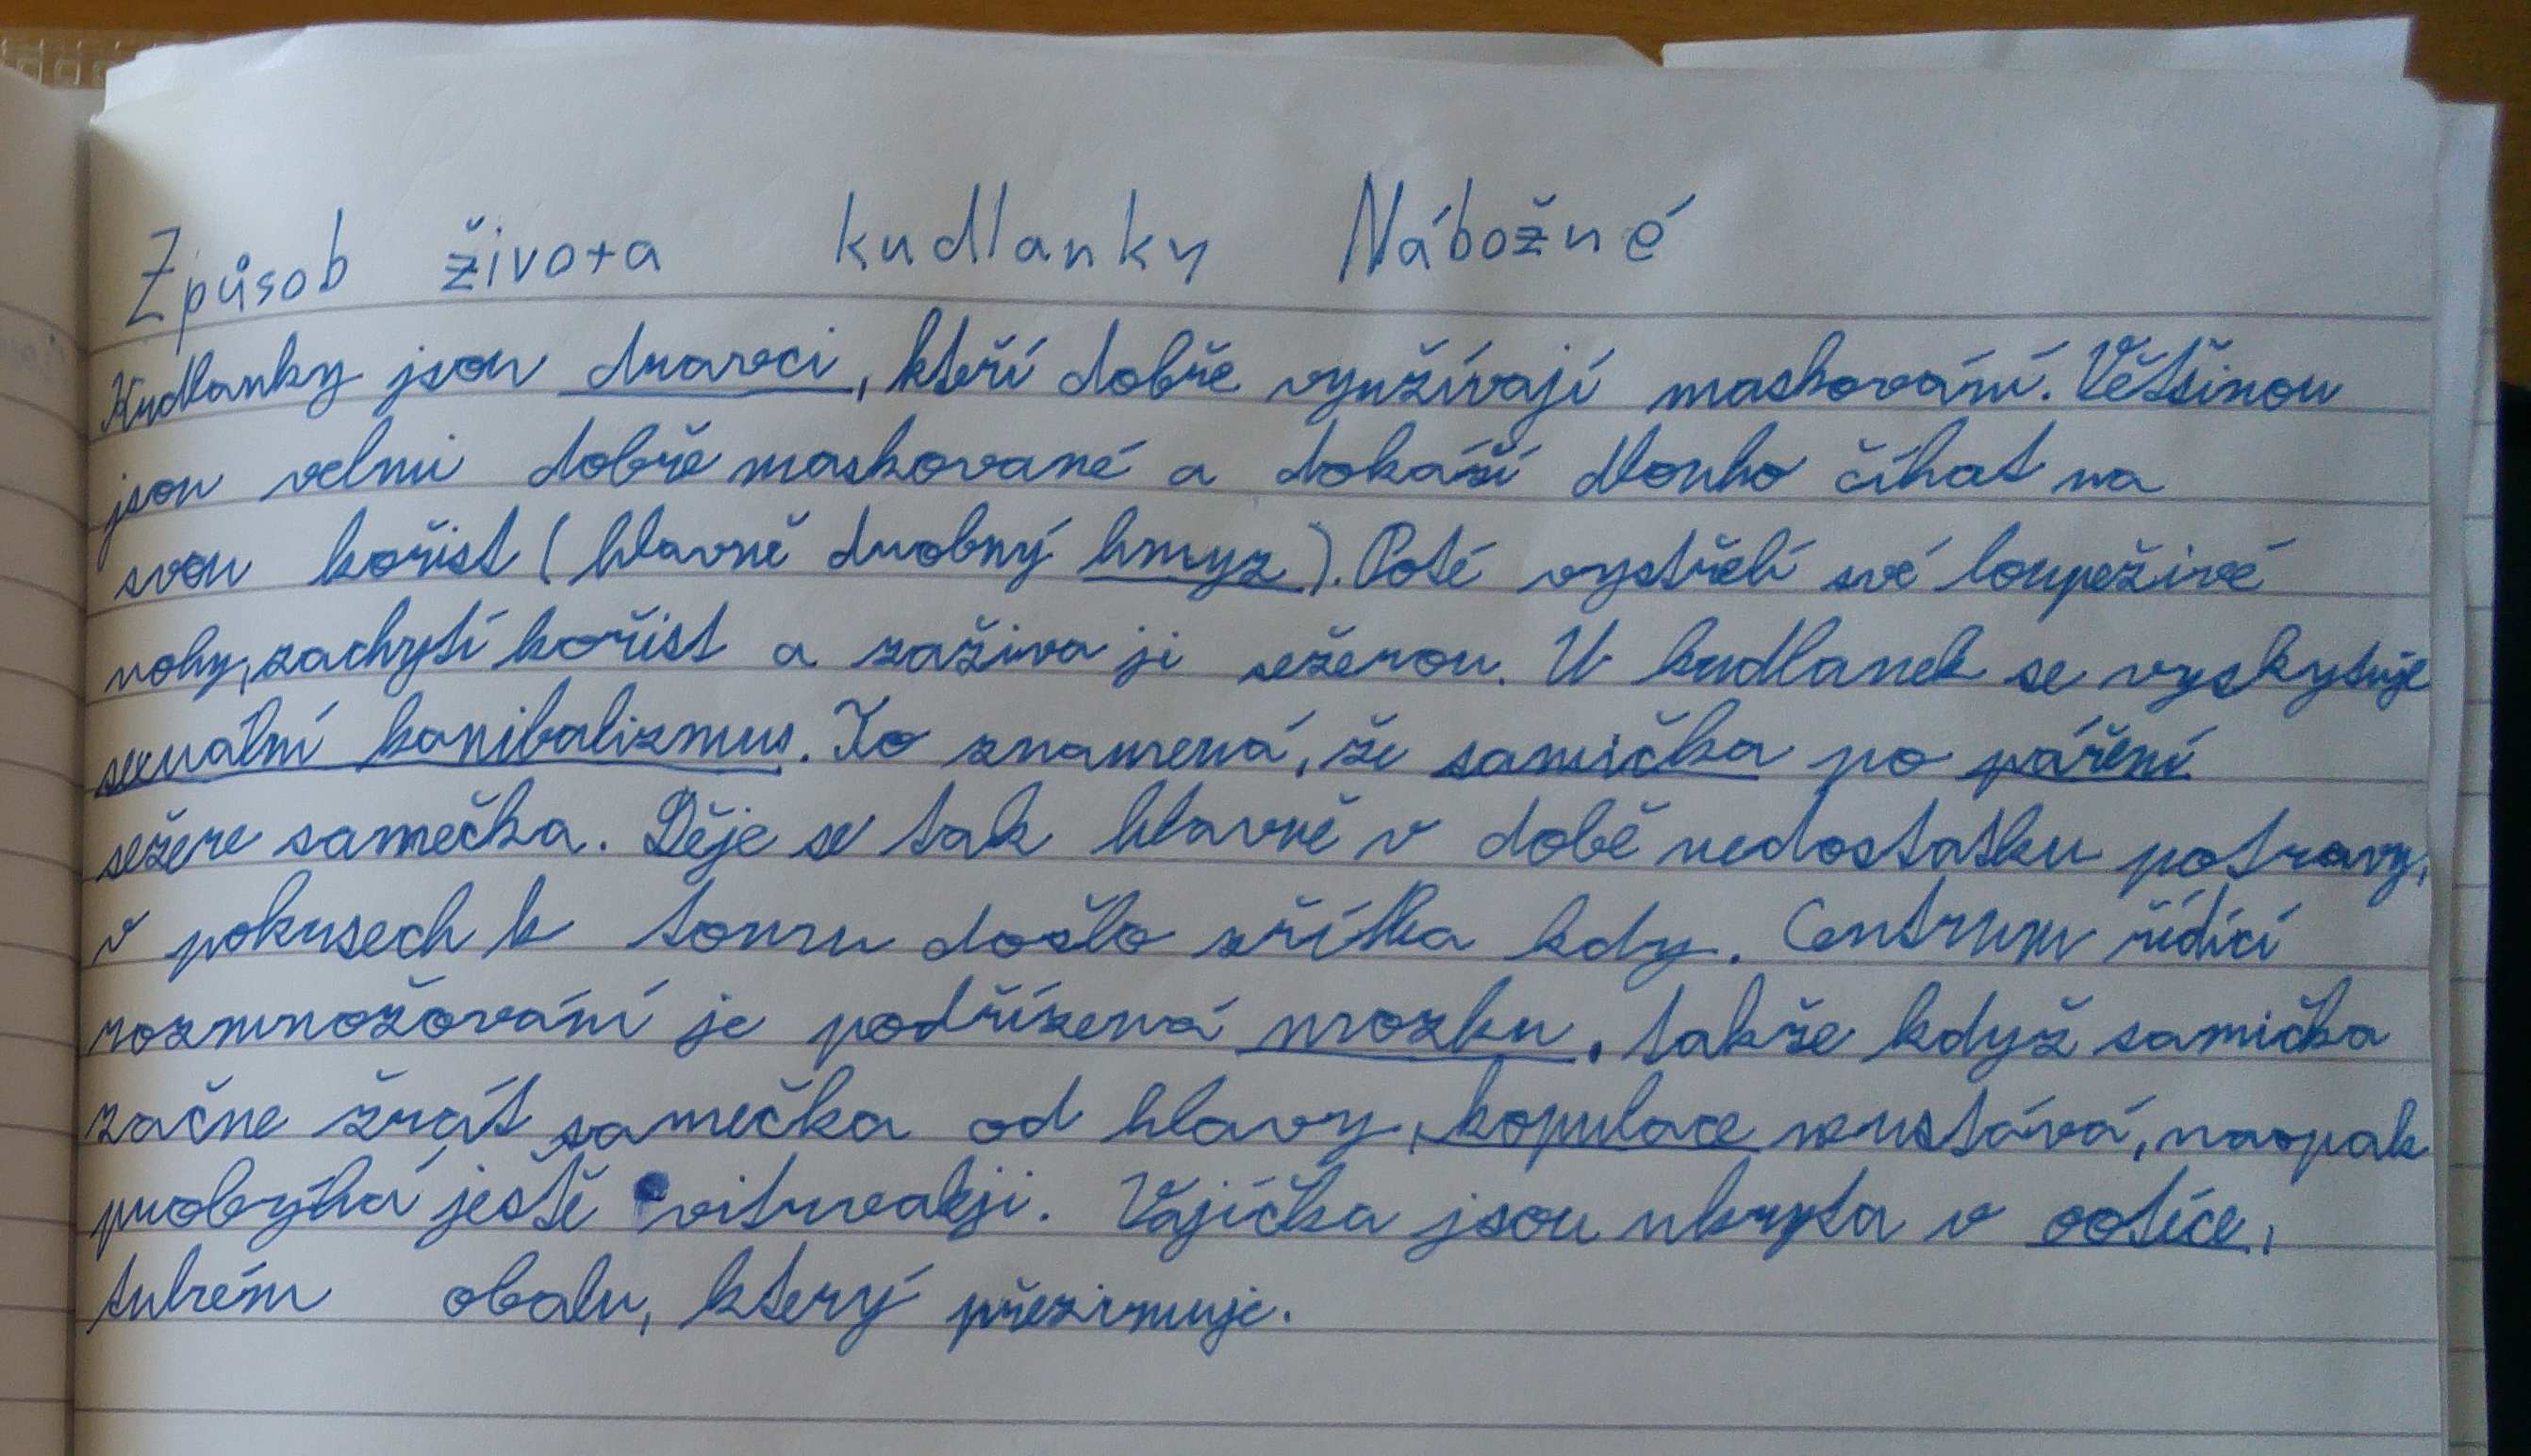 Způsob života kudlanky Nábožné
Kudlanky jsou dravci, kteří dobře využívají maskování. Většinou
jsou velmi dobře maskované a dokáží dlouho číhat na
svou kořist (hlavně drobný hmyz). Poté vystřelí své loupeživé
nohy, zachytí kořist a zaživa ji sežerou. U kudlanek se vyskytuje
sexuální kanibalizmus. To znamená, že samička po páření
sežere samečka. Děje se tak hlavně v době nedostatku potravy,
v pokusech k tomu došlo zřítka kdy. Centrum řídící
rozmnožování je podřízená mozku, takže když samička
začne žrát samečka od hlavy, kopulace neustává, naopak
probýhá ještě Vajíčka jsou ukryta v ootéce,
tuhém obalu, který přezimuje.